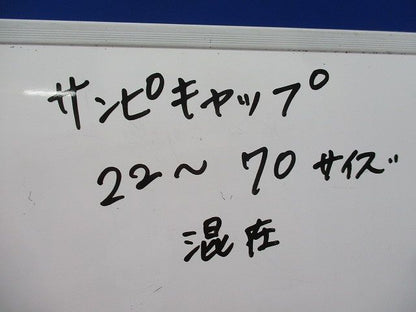 サンピキャップ
22～70サイズ
混在